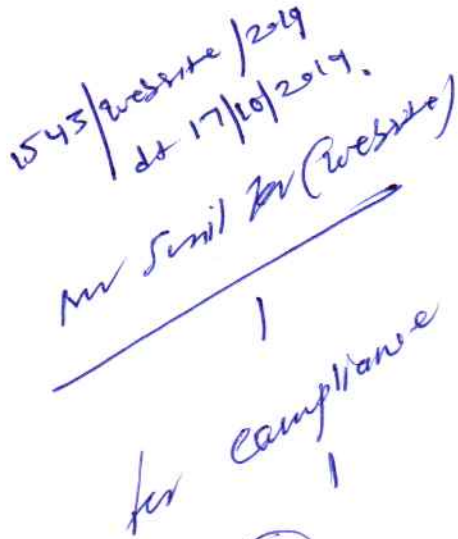 1543/website/2019
dt 17/10/2019.
Mr Sunil Kr (website)
for compliance